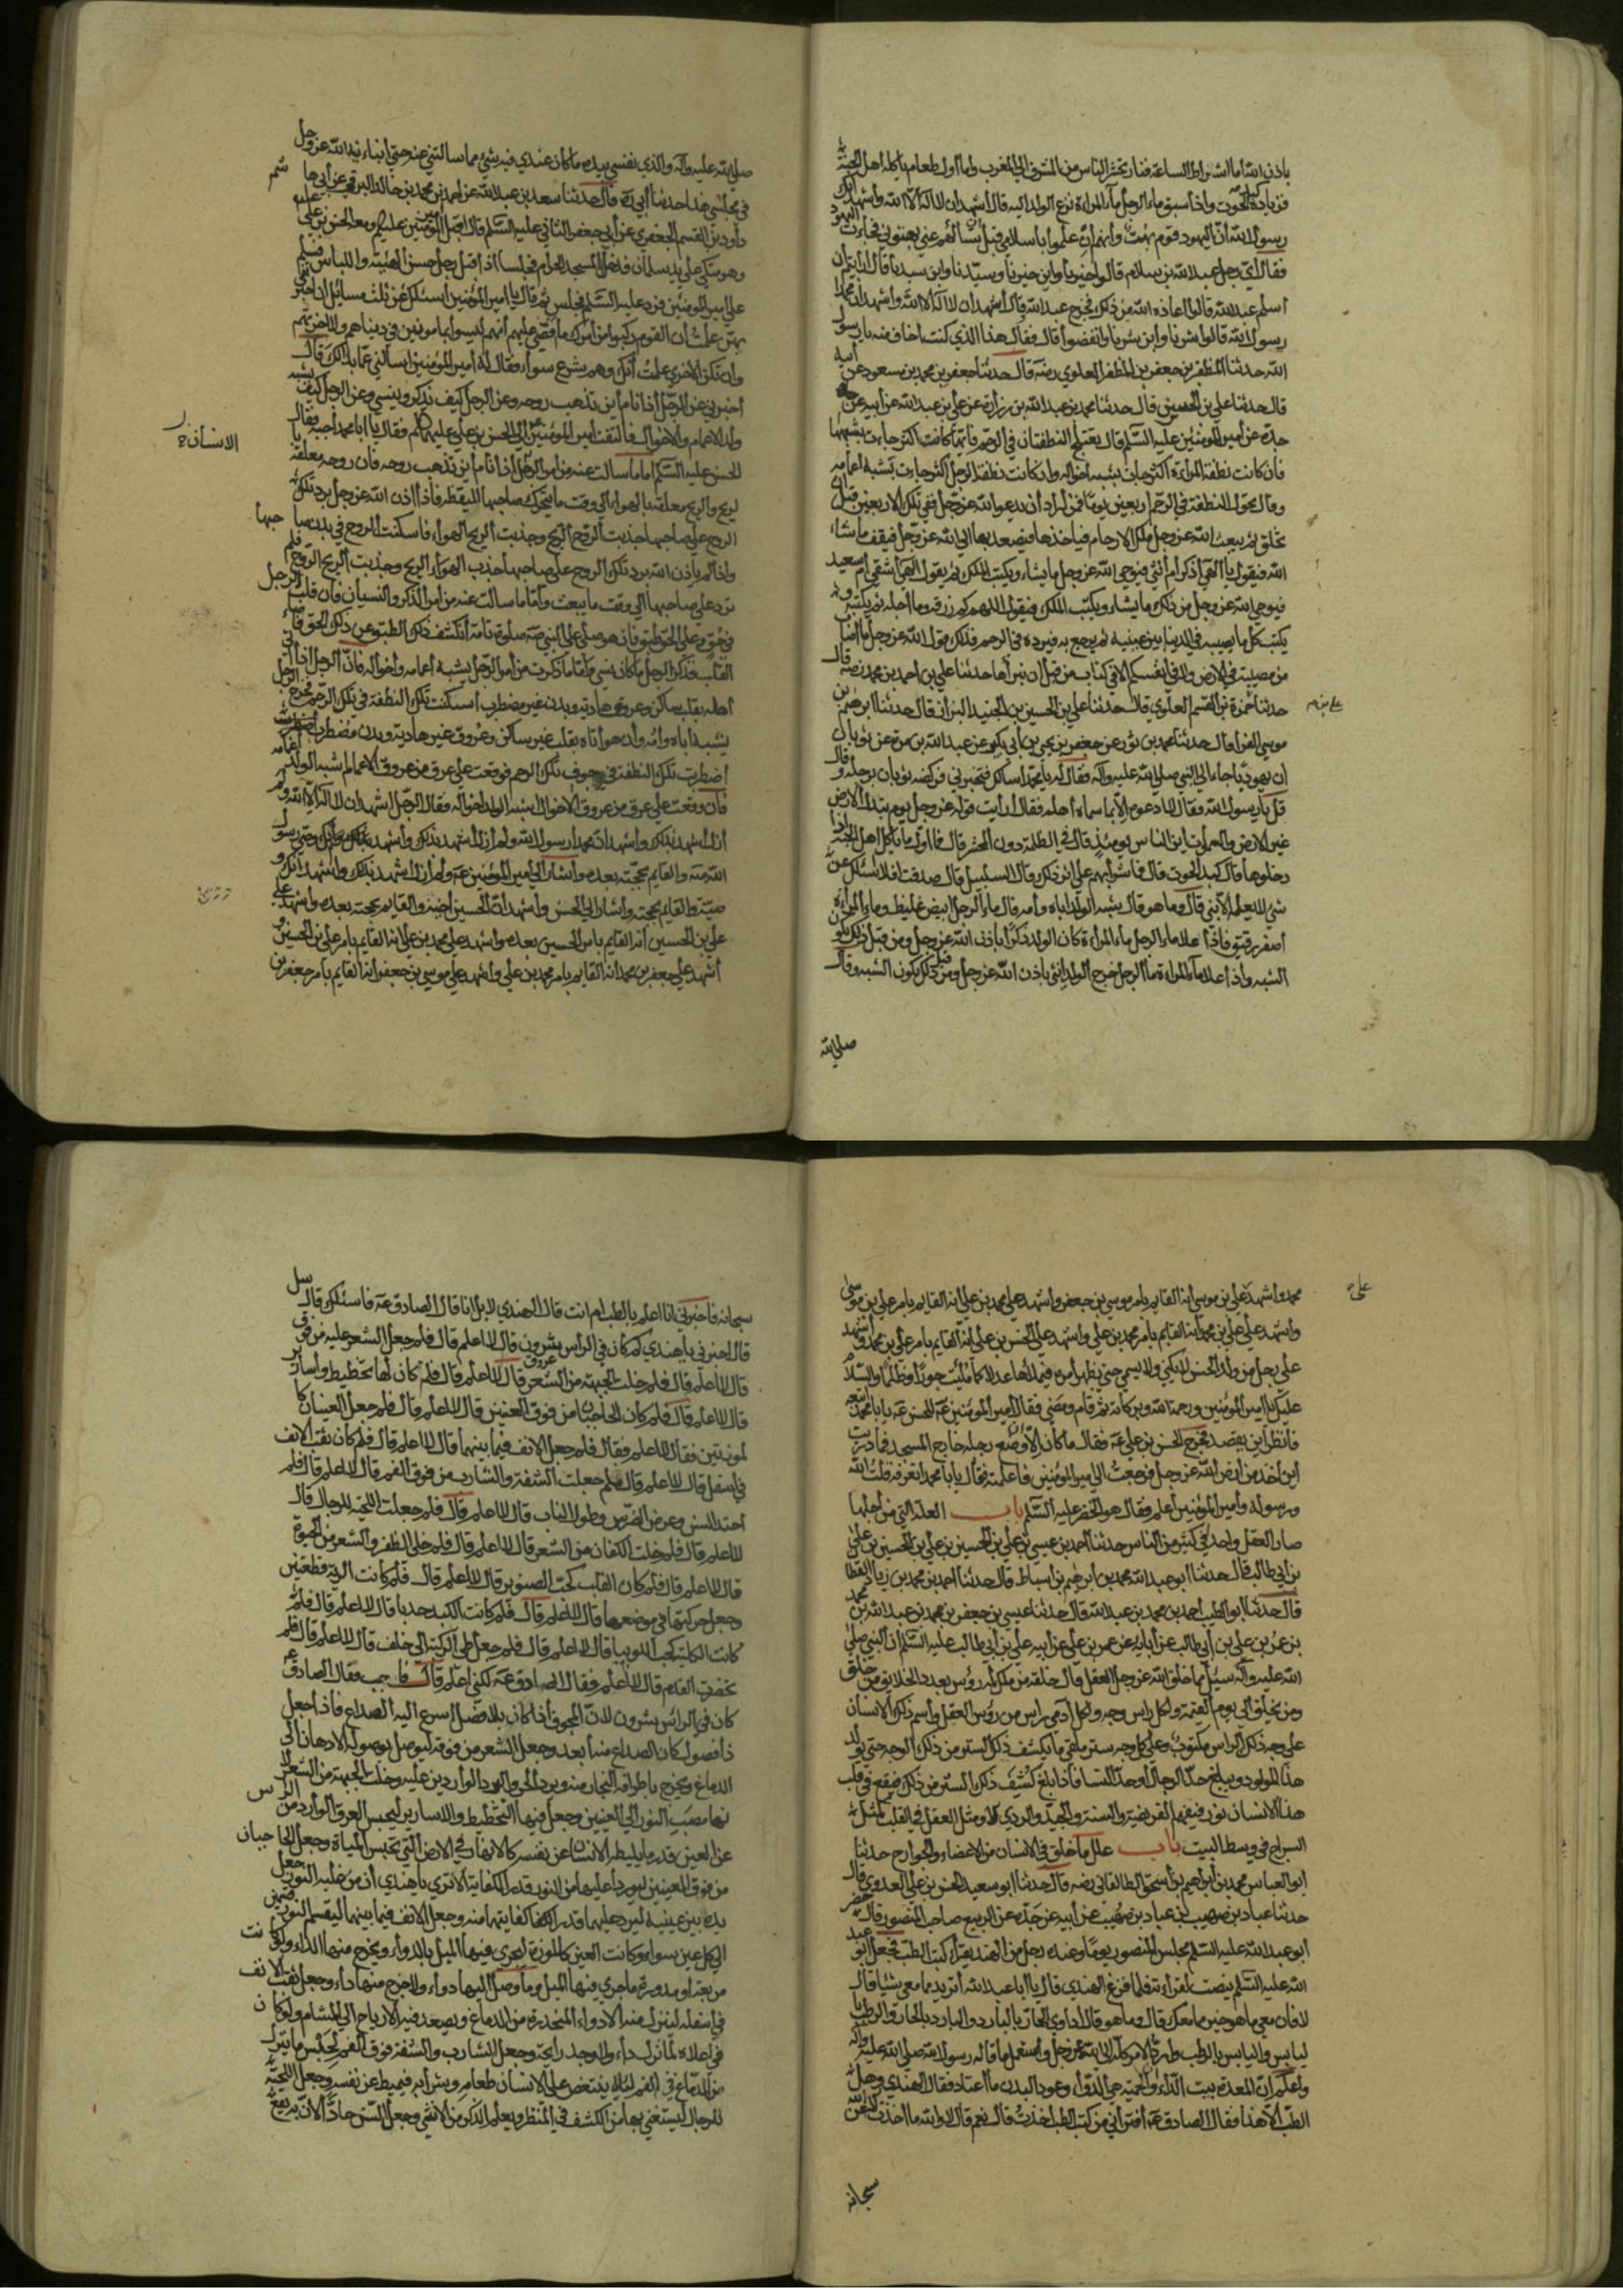 باذن الله اما اشراط الساعة فنار تحشر الناس من المشرق الى المغرب واما اول طعام يأكله اهل الجنة
فزيادة كبد الحوت واذا سبق ماء الرجل ماء المراة نزع الولد اليه قال اشهد ان لا اله الا الله واشهد انك
رسول الله ان اليهود قوم بهت وانهم ان علموا باسلامي قبل ان تسألهم عني بهتوني فجاءت اليهود
فقال اي رجل عبد الله بن سلام قالوا خيرنا وابن خيرنا وسيدنا وابن سيدنا قال ارايتم ان
اسلم عبد الله قالوا اعاذه الله من ذلك فخرج عبد الله وقال اشهد ان لا اله الا الله واشهد ان محمدا
رسول الله قالوا شرنا وابن شرنا وانتقصوا قال فقال هذا الذي كنت اخاف منه يا رسول
الله حدثنا المظفر بن جعفر بن المظفر العلوي رضه قال حدثنا جعفر بن محمد بن مسعود عن ابيه
قال حدثنا علي بن الحسين قال حدثنا محمد بن عبد الله بن زرارة عن علي بن عبد الله عن ابيه عن
جده عن امير المؤمنين عليه السلام قال تعتلج النطفتان في الرحم فايتهما كانت اكثر جاءت تشبهها
فان كانت نطفة المراة اكثر جاءت تشبه اخواله وان كانت نطفة الرجل اكثر جاءت تشبه اعمامه
وقال تحول النطفة في الرحم اربعين يوما فمن اراد ان يدعو الله عز وجل ففي تلك الاربعين قبل
تخلق ثم يبعث الله عز وجل ملك الارحام فياخذها فيصعد بها الى الله عز وجل فيقف ما شاء
الله فيقول يا الهي اذكر ام انثى فيوحي الله عز وجل ما يشاء ويكتب الملك ثم يقول الهي اشقي ام سعيد
فيوحي الله عز وجل من ذلك ما يشاء ويكتب الملك فيقول اللهم كم رزقه وما اجله ثم يكتبه و
يكتب كل ما يصيبه في الدنيا بين عينيه ثم يرجع به فيرده في الرحم فذلك قول الله عز وجل ما اصاب
من مصيبة في الارض ولا في انفسكم الا في كتاب من قبل ان نبراها حدثنا علي بن احمد بن محمد رضه قال
حدثنا حمزة بن القسم العلوي قال حدثنا علي بن الحسين بن الجنيد البزاز قال حدثنا ابرهيم بن
موسى الفرا قال حدثنا محمد بن ثور عن جعفر بن يحيى بن ابي كثير عن عبد الله بن مرة عن ثوبان
ان يهوديا جاء الى النبي صلى الله عليه وآله فقال له يا محمد اسالك فتخبرني فركضه ثوبان برجله وقال
قل يا رسول الله فقال لا ادعوه الا بما سماه اهله فقال ارايت قوله عز وجل يوم تبدل الارض
غير الارض والسموات اين الناس يومئذ قال في الظلمة دون المحشر قال فما اول ما ياكل اهل الجنة اذا
دخلوها قال كبد الحوت قال فما شرابهم على اثر ذلك قال السلسبيل قال صدقت افلا اسئلك عن
شيء لا يعلمه الا نبي قال وما هو قال شبه الولد اباه وامه قال ماء الرجل ابيض غليظ وماء المراة
اصفر رقيق فاذا علا ماء الرجل ماء المراة كان الولد ذكرا باذن الله عز وجل ومن قبل ذلك يكون
الشبه واذا علا ماء المراة ماء الرجل خرج الولد انثى باذن الله عز وجل ومن قبل ذلك يكون الشبه وقال
صلى الله
صلى الله عليه وآله والذي نفسي بيده ما كان عندي فيه شيء مما سالتني عنه حتى انبانيه الله عز وجل
في مجلسي هذا حدثنا ابي ره قال حدثنا سعد بن عبد الله عن احمد بن محمد بن خالد البرقي عن ابي هاشم
داود بن القسم الجعفري عن ابي جعفر الثاني عليه السلام قال اقبل امير المؤمنين عليه السلم ومعه الحسن بن علي
وهو متكي على يد سلمان فدخل المسجد الحرام فجلس اذا اقبل رجل حسن الهيئة واللباس فسلم
على امير المؤمنين فرد عليه السلام فجلس ثم قال يا امير المؤمنين اسئلك عن ثلث مسائل ان اخبرتني
بهن علمت ان القوم ركبوا من امرك ما قضي عليهم انهم ليسوا بمامونين في دنياهم ولا اخرتهم
وان تكن الاخرى علمت انك وهم شرع سواء فقال له امير المؤمنين اسالني عما بدا لك قال
اخبرني عن الرجل اذا نام اين تذهب روحه وعن الرجل كيف يذكر وينسى وعن الرجل كيف يشبه
ولده الاعمام والاخوال فالتفت امير المؤمنين الى الحسن بن علي عليهما السلم فقال يا ابا محمد اجبه فقال
الانسان
الحسن عليه السلام اما ما سالت عنه من امر الرجل اذا نام اين تذهب روحه فان روحه معلقة
بالريح والريح معلقة بالهواء الى وقت ما يتحرك صاحبها لليقظة فاذا اذن الله عز وجل برد تلك
الروح على صاحبها جذبت الروح الريح وجذبت الريح الهواء فاسكنت الروح في بدن صاحبها
واذا لم ياذن الله برد تلك الروح على صاحبها جذب الهواء الريح وجذبت الريح الروح فلم
ترد على صاحبها الى وقت ما يبعث واما ما سالت عنه من امر الذكر والنسيان فان قلب الرجل
في حق وعلى الحق طبق فان هو صلى على النبي صلوة تامة انكشف ذلك الطبق عن ذلك الحق فاضاء
القلب وذكر الرجل ما كان نسي واما ما ذكرت من امر الرجل يشبه اعمامه واخواله فان الرجل اذا اتى
اهله بقلب ساكن وعروق هادية وبدن غير مضطرب اسكنت تلك النطفة في تلك الرحم فخرج الرجل
يشبه اباه وامه وان هو اتاه بقلب غير ساكن وعروق غير هادية وبدن مضطرب اضطربت
اضطربت تلك النطفة في جوف تلك الرحم فوقعت على عرق من عروق الاعمام اشبه الولد اعمامه
فان وقعت على عرق من عروق الاخوال اشبه الولد اخواله فقال الرجل اشهد ان لا اله الا الله ولم
ازل اشهد بذلك واشهد ان محمدا رسول الله ولم ازل اشهد بذلك واشهد انك وصي رسول
الله والقايم بحجته بعده واشار الى امير المؤمنين ولم ازل اشهد بذلك واشهد انك
وصيه والقايم بحجته واشار الى الحسن واشهد ان الحسين ابنه والقايم بحجته بعده واشهد على
علي بن الحسين انه القايم بامر الحسين بعده واشهد على محمد بن علي انه القايم بامر علي بن الحسين و
اشهد على جعفر بن محمد انه القايم بامر محمد بن علي واشهد على موسى بن جعفر انه القايم بامر جعفر بن
محمد واشهد على علي بن موسى انه القايم بامر موسى بن جعفر واشهد على محمد بن علي انه القايم بامر علي بن موسى
واشهد على علي بن محمد انه القايم بامر محمد بن علي واشهد على الحسن بن علي انه القايم بامر علي بن محمد واشهد
على رجل من ولد الحسن لا يكنى ولا يسمى حتى يظهر امره فيملاها عدلا كما ملئت جورا وظلما والسلام
عليك يا امير المؤمنين ورحمة الله وبركاته ثم قام ومضى فقال امير المؤمنين للحسن يا با محمد اتبعه
فانظر اين يقصد فخرج الحسن بن علي فقال ما كان الا ان وضع رجله خارج المسجد فما دريت
اين اخذ من ارض الله عز وجل فرجعت الى امير المؤمنين فاعلمته فقال يا با محمد اتعرفه قلت الله
ورسوله وامير المؤمنين اعلم فقال هو الخضر عليه السلام باب العلة التي من اجلها
صار العقل واحد في كثير من الناس حدثنا احمد بن عيسى بن علي بن الحسين بن علي بن الحسين بن علي
بن ابي طالب قال حدثنا ابو عبد الله محمد بن ابرهيم بن اسباط قال حدثنا احمد بن محمد بن زياد القطان
قال حدثنا ابو الطيب احمد بن محمد بن عبد الله قال حدثنا عيسى بن جعفر بن محمد بن عبد الله بن محمد
بن عمر بن علي بن ابي طالب عن ابائه عن عمر بن علي عن ابيه علي بن ابي طالب عليه السلام ان النبي صلى
الله عليه وآله سئل مما خلق الله عز وجل العقل قال خلقه من ملك له رؤس بعدد الخلايق من خلق
ومن يخلق الى يوم القيمة ولكل راس وجه ولكل آدمي راس من رؤس العقل واسم ذلك الانسان
على وجه ذلك الراس مكتوب وعلى كل وجه ستر ملقى ما يكشف ذلك الستر من ذلك الوجه حتى يولد
هذا المولود ويبلغ حد الرجال او حد النسا فاذا بلغ كشف ذلك الستر من ذلك فيقع في قلب
هذا الانسان نور فيفهم الفريضة والسنة والجيد والردي الا ومثل العقل في القلب كمثل
السراج في وسط البيت باب علل ما خلق في الانسان من الاعضاء والجوارح حدثنا
ابو العباس محمد بن ابرهيم بن اسحق الطالقاني رضه قال حدثنا ابو سعيد الحسن بن علي العدوي قال
حدثنا عباد بن صهيب بن عباد بن صهيب عن ابيه عن جده عن الربيع صاحب المنصور قال حضر
ابو عبد الله عليه السلم مجلس المنصور يوما وعنده رجل من الهند يقرأ كتب الطب فجعل ابو عبد
الله عليه السلم ينصت لقراءته فلما فرغ الهندي قال يا ابا عبد الله اتريد مما معي شيئا قال
لا فان معي ما هو خير مما معك قال وما هو قال اداوي الحار بالبارد والبارد بالحار والرطب
باليابس واليابس بالرطب وارد الامر كله الى الله عز وجل واستعمل ما قاله رسول الله صلى الله عليه وآله
واعلم ان المعدة بيت الداء وان الحمية هي الدواء وعود البدن ما اعتاد فقال الهندي وهل
الطب الا هذا فقال الصادق افتراني من كتب الطب اخذت قال نعم قال لا والله ما اخذت الا عن الله
سبحانه
سبحانه فاخبرني انا اعلم بالطب ام انت قال الهندي لا بل انا قال الصادق فاسئلك قال سل
قال اخبرني يا هندي لم كان في الراس شؤون قال لا اعلم قال فلم جعل الشعر عليه من فوق
قال لا اعلم قال فلم خلت الجبهة من الشعر قال لا اعلم قال فلم كان لها تخطيط واسارير
قال لا اعلم قال فلم كان الحاجبان من فوق العينين قال لا اعلم قال فلم جعل العينان كا
للوزتين فقال لا اعلم فقال فلم جعل الانف فيما بينهما قال لا اعلم قال فلم كان ثقب الانف
في اسفل قال لا اعلم قال فلم جعلت الشفة والشارب من فوق الفم قال لا اعلم قال فلم
احتد السن وعرض الضرس وطول الناب قال لا اعلم قال فلم جعلت اللحية للرجال قال
لا اعلم قال فلم خلت الكفان من الشعر قال لا اعلم قال فلم خلى الظفر والشعر من الحيوة
قال لا اعلم قال فلم كان القلب كحب الصنوبر قال لا اعلم قال فلم كانت الرية قطعتين
وجعل حركتها في موضعها قال لا اعلم قال فلم كانت الكبد حدبا قال لا اعلم قال فلم
كانت الكلية كحب اللوبيا قال لا اعلم قال فلم جعل طي الركبة الى خلف قال لا اعلم قال فلم
تخصرت القدم قال لا اعلم فقال الصادق لكني اعلم قال فاجب فقال الصادق
كان في الراس شؤون لان المجوف اذا كان بلا فصل اسرع اليه الصداع فاذا جعل
ذا فصول كان الصداع منه ابعد وجعل الشعر من فوقه ليوصل بوصوله الادهان الى
الدماغ ويخرج باطرافه البخار منه ويرد الحر والبرد الواردين عليه وخلت الجبهة من الشعر
لانها مصب النور الى العينين وجعل فيها التخطيط والاسارير ليحبس العرق الوارد من الراس
عن العين قدر ما يميطه الانسان عن نفسه كالانهار في الارض التي تحبس المياه وجعل الحاجبان
من فوق العينين ليورد عليهما من النور قدر الكفاية الا ترى يا هندي ان من غلبه النور جعل
يده بين عينيه ليرد عليهما قدر كفايتهما منه وجعل الانف فيما بينهما ليقسم النور قسمين
الى كل عين سواء وكانت العين كاللوزة ليجري فيها الميل بالدواء ويخرج منها الداء ولو كانت
مربعة او مدورة ما جرى فيها الميل وما وصل اليها دواء ولا خرج منها داء وجعل ثقب الانف
في اسفله لينزل منه الادواء المنحدرة من الدماغ ويصعد فيه الارياح الى المشام ولو كان
في اعلاه لما نزل داء ولا وجد رايحة وجعل الشارب والشفة فوق الفم لحبس ما ينزل
من الدماغ في الفم لئلا يتنغص على الانسان طعامه وشرابه فيميط عن نفسه وجعل اللحية
للرجال ليستغني بها من الكشف في المنظر ويعلم الذكر من الانثى وجعل السن حادا لان به يقع